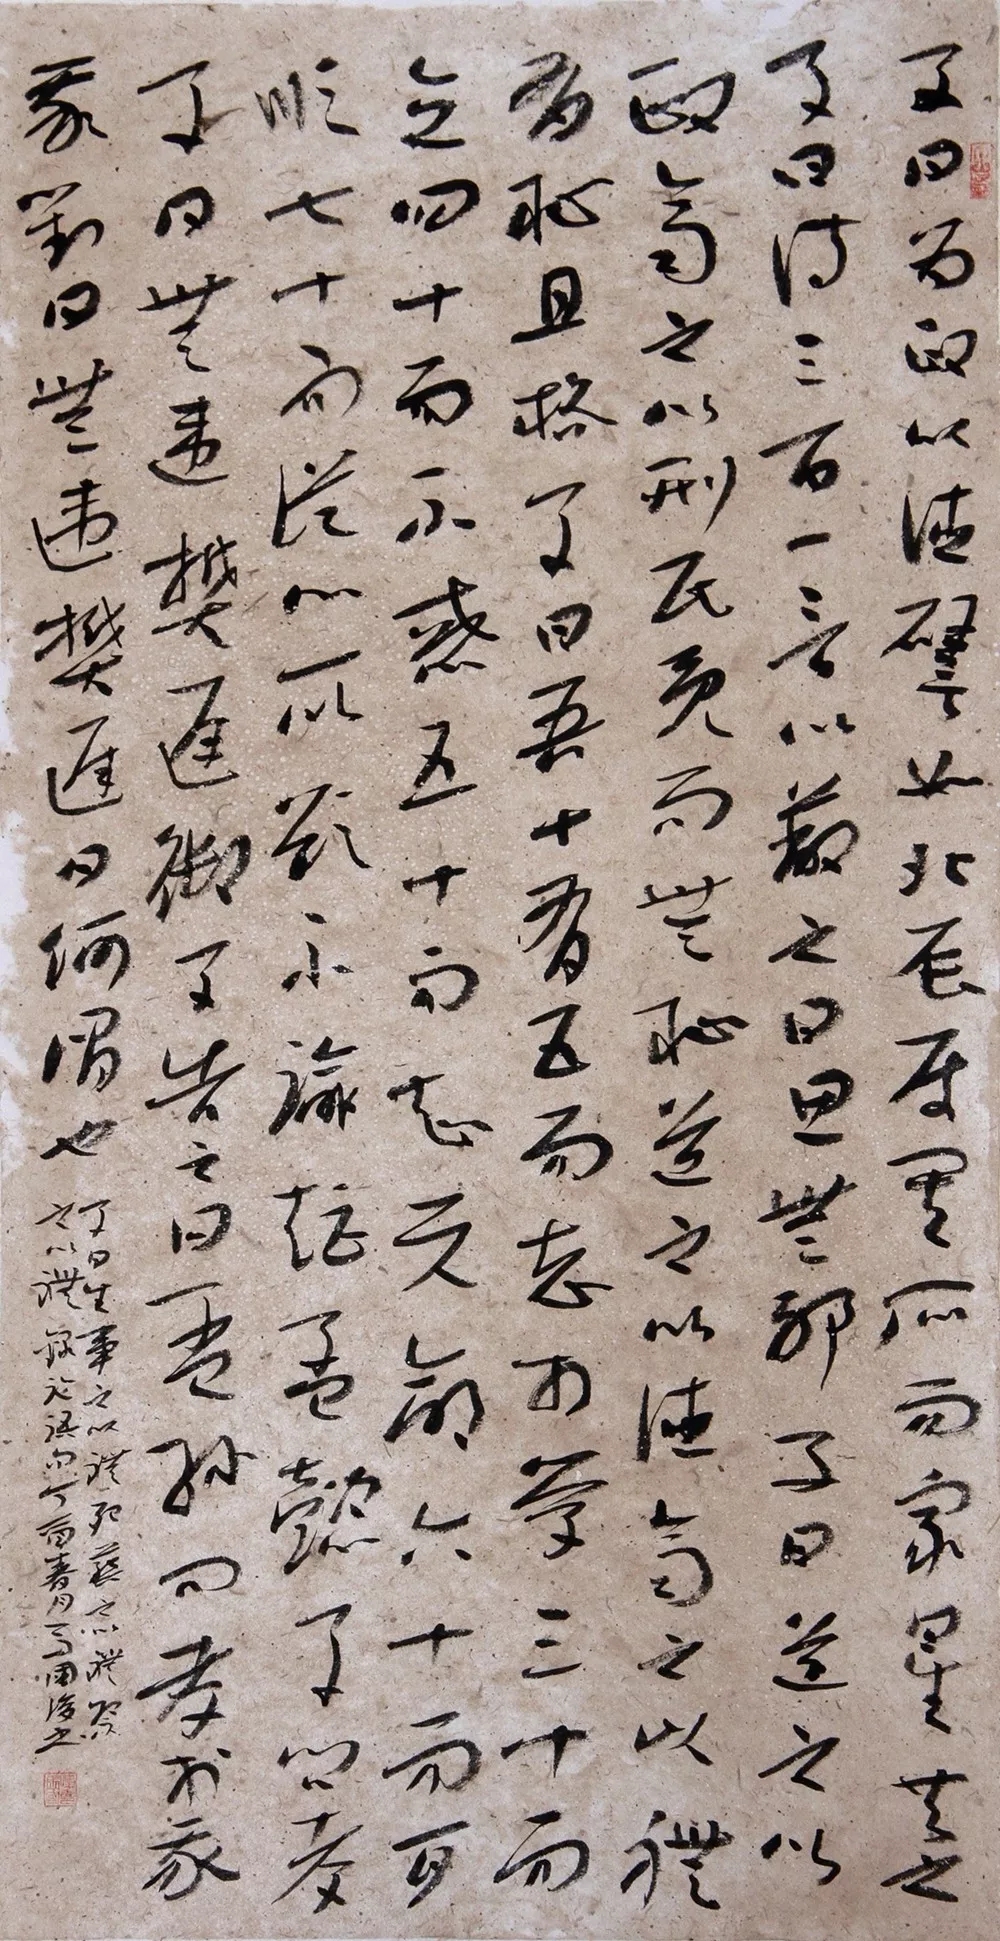 子曰为政以德譬如北辰居其所而众星共之
子曰诗三百一言以蔽之曰思無邪子曰道之以
政齊之以刑民免而無恥道之以德齊之以禮
有恥且格子曰吾十有五而志於学三十而
立四十而不惑五十而知天命六十而耳
順七十而從心所欲不踰矩孟懿子问孝
子曰無违樊遅御子告之曰孟孫问孝於我
我對曰無违樊遅曰何謂也
子曰生事之以禮死葬之以禮祭
之以禮